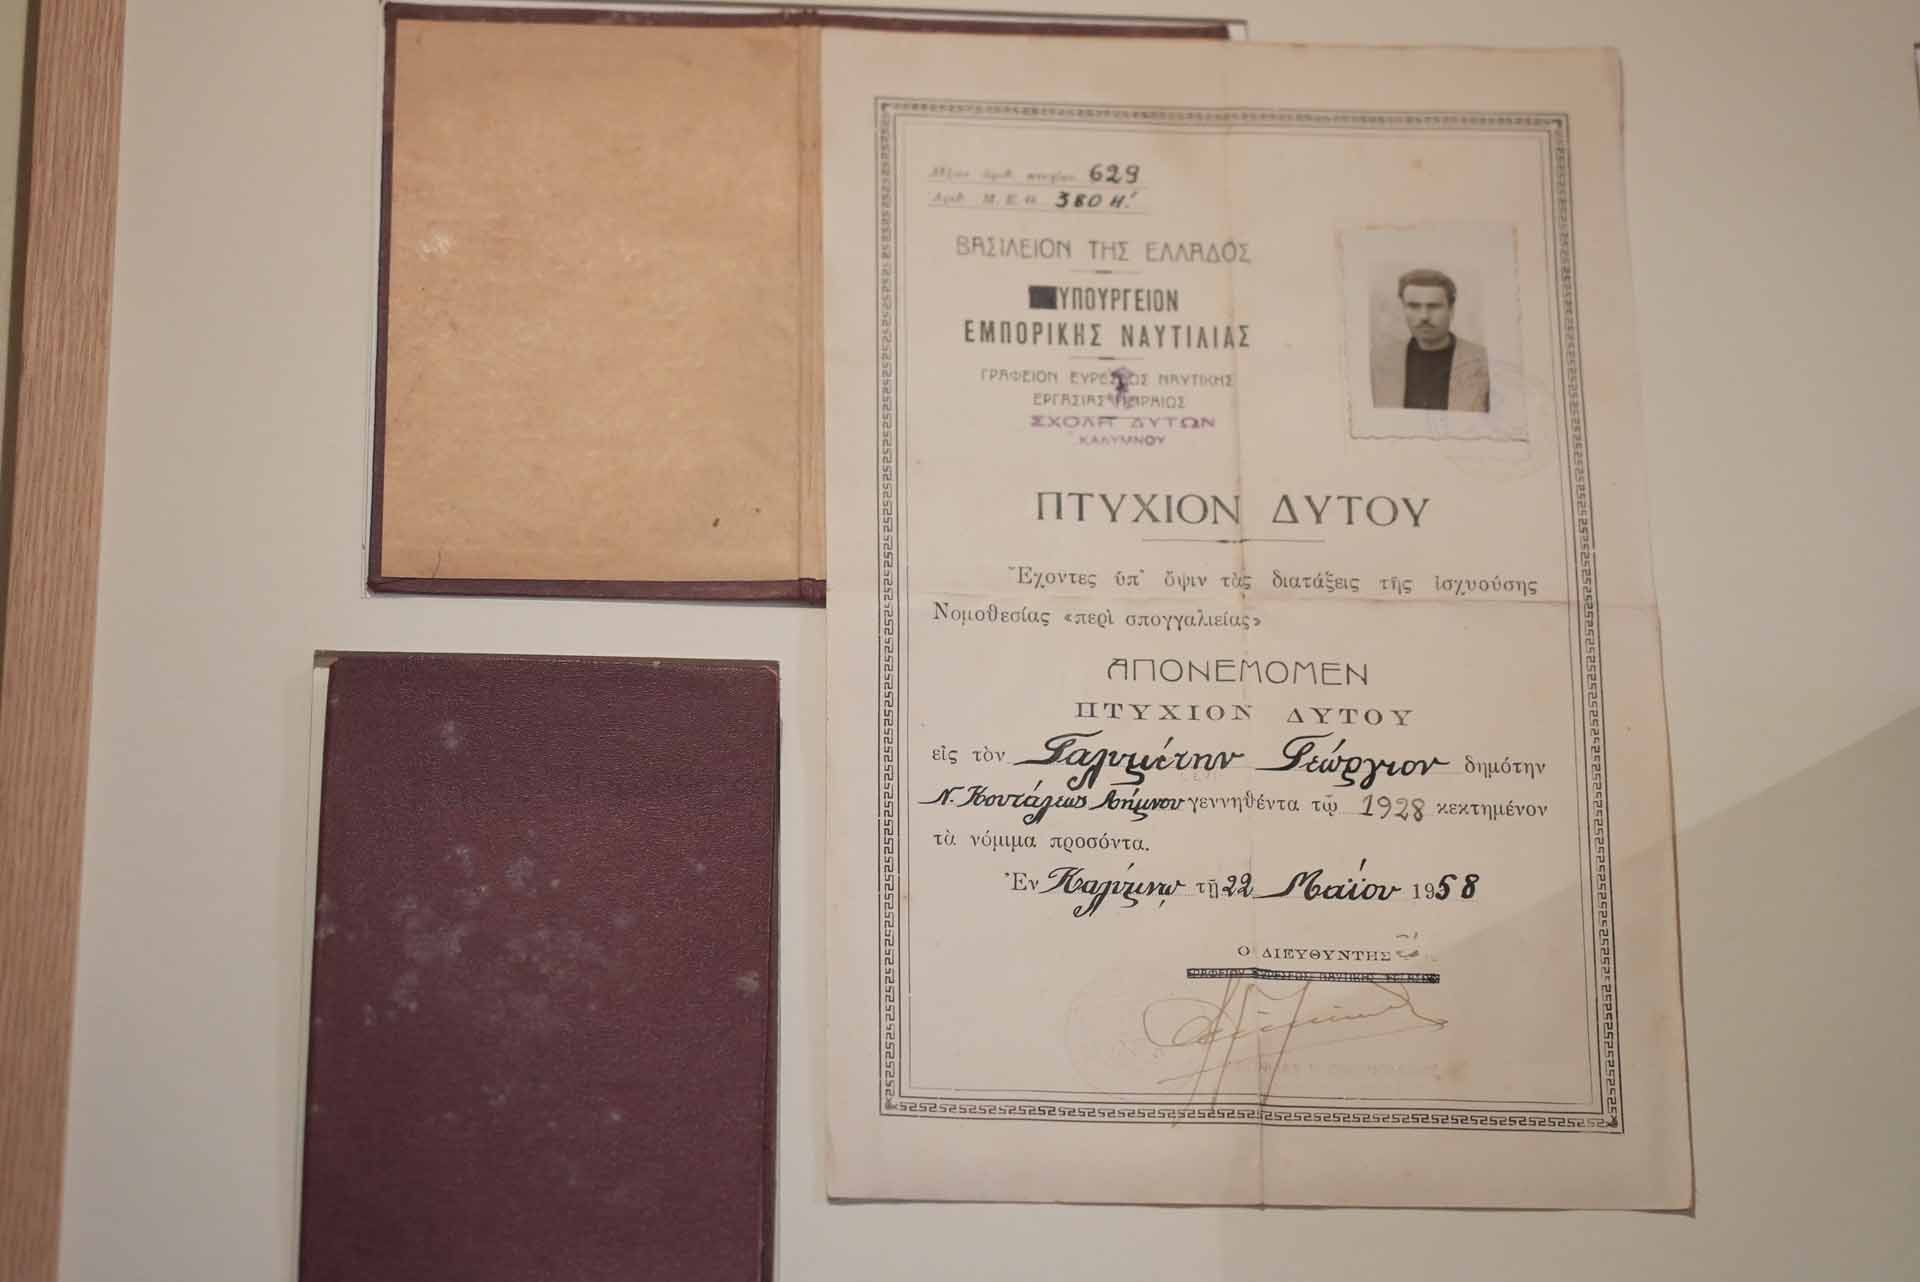 Αὔξων ἀριθ. πτυχίου 629
Ἀριθ. Μ. Ε. Θ. 380 Η.'
ΒΑΣΙΛΕΙΟΝ ΤΗΣ ΕΛΛΑΔΟΣ
ΥΠΟΥΡΓΕΙΟΝ
ΕΜΠΟΡΙΚΗΣ ΝΑΥΤΙΛΙΑΣ
ΓΡΑΦΕΙΟΝ ΕΥΡΕΣΕΩΣ ΝΑΥΤΙΚΗΣ
ΕΡΓΑΣΙΑΣ ΠΕΙΡΑΙΩΣ
ΣΧΟΛΗ ΔΥΤΩΝ
ΚΑΛΥΜΝΟΥ
ΠΤΥΧΙΟΝ ΔΥΤΟΥ
Ἔχοντες ὑπ' ὄψιν τὰς διατάξεις τῆς ἰσχυούσης
Νομοθεσίας «περὶ σπογγαλιείας»
ΑΠΟΝΕΜΟΜΕΝ
ΠΤΥΧΙΟΝ ΔΥΤΟΥ
εἰς τὸν Γαλυμίτην Γεώργιον δημότην
Ν. Κουτάλεως Λήμνου γεννηθέντα τῷ 1928 κεκτημένον
τὰ νόμιμα προσόντα.
Ἐν Καλύμνῳ τῇ 22 Μαΐου 1958
Ο ΔΙΕΥΘΥΝΤΗΣ